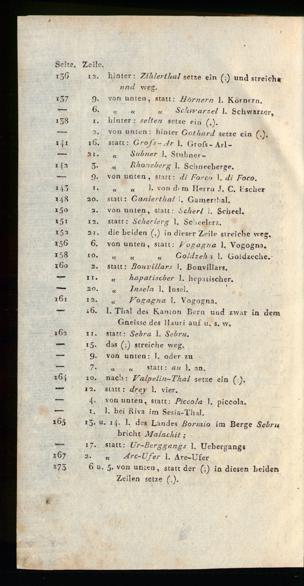 Seite. Zeile.
136 12. hinter: Zihlerthal setze ein (;) und streiche
und weg.
137 9. von unten, statt: Hörnern l. Körnern.
— 6. „ „ Schwarzel l. Schwarzer,
138 1. hinter: selten setze ein (.).
— 2. von unten: hinter Gothard setze ein (.).
141 16. statt: Grofs-Ar l. Grofs-Arl-
— 21. „ Subner l. Stubner-
142 3. „ Rhoneberg l. Schneeberge.
— 9. von unten, statt: di Forco l. di Foco.
143 1. „ „ l. von dem Herrn J. C. Escher
148 20. statt: Ganierthal l. Gamerthal.
150 2. von unten, statt: Scherl l. Scheel.
151 12. statt: Scherlerg l. Scheelerz.
152 21. die beiden (,) in dieser Zeile streiche weg.
156 6. von unten, statt: Vogagna l. Vogogna.
158 10. „ „ „ Goldzehs l. Goldzeche.
160 2. statt: Bouvillars l. Bonvillars.
— 11. „ hapatischer l. hepatischer.
— 20. „ Inseln l. Insel.
161 12. „ Vogagna l. Vogogna.
— 16. l. Thal des Kanton Bern und zwar in dem
Gneisse des Hauri auf u. s. w.
162 11. statt: Sebra l. Sebru.
— 15. das (;) streiche weg.
— 9. von unten: l. oder zu
— 7. „ „ statt: au l. an.
164 10. nach: Valpelin-Thal setze ein (.).
— 12. statt: drey l. vier.
— 4. von unten, statt: Piccola l. piccola.
— 1. l. bei Riva im Sesia-Thal.
165 13. u. 14. l. des Landes Bormio im Berge Sebru
bricht Malachit;
— 17. statt: Ur-Berggangs l. Uebergangs
167 2. „ Arc-Ufer l. Are-Ufer
173 6 u. 5. von unten, statt der (;) in diesen beiden
Zeilen setze (.).